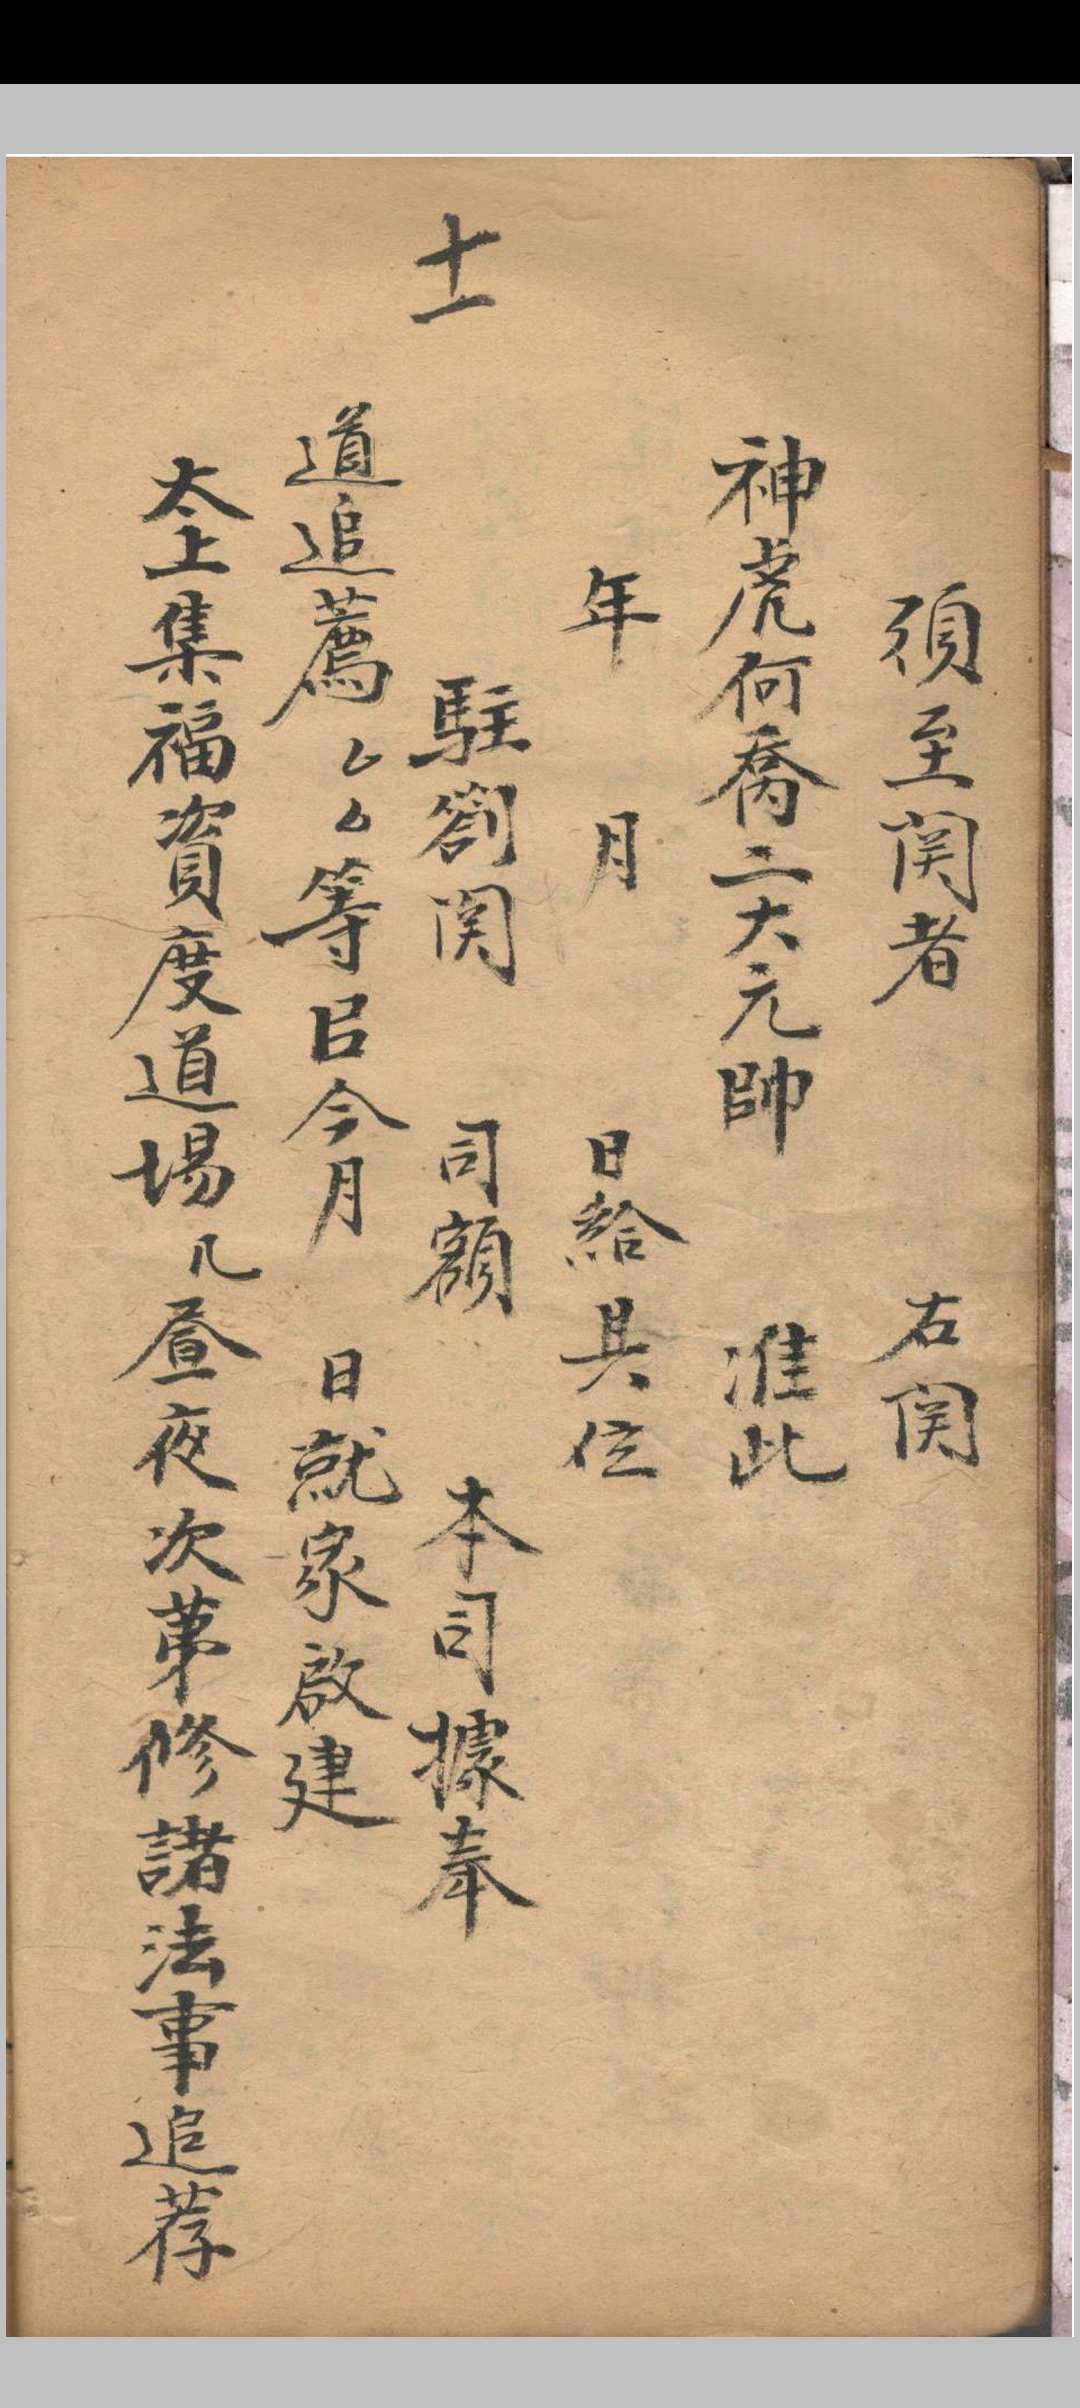 須至関者　右関
神虎何喬二大元帥　准此
年　月　日給具位
十一
駐劄関　司額　本司據奉
道追薦厶厶等㠯今月　日就家啟建
太上集福資度道場凡昼夜次苐修諸法事追荐